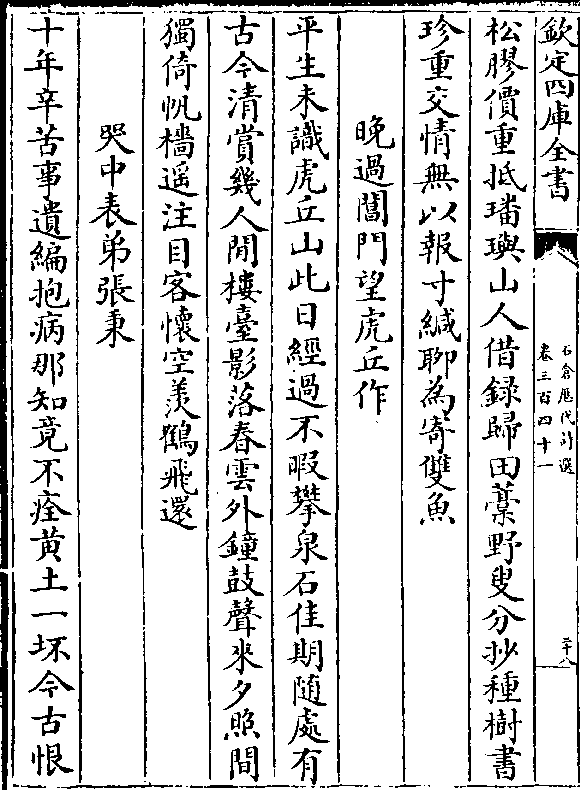 欽定四庫全書
石倉歷代詩選
卷三百四十一
二十八
松膠價重抵璠璵山人借録歸田藁野叟分抄種樹書
珍重交情無以報寸緘聊為寄雙魚
晚過閶門望虎丘作
平生未識虎丘山此日經過不暇攀泉石佳期隨處有
古今清賞幾人閒樓臺影落春雲外鐘鼓聲來夕照間
獨倚帆檣遥注目客懷空羨鶴飛還
哭中表弟張秉
十年辛苦事遺編抱病那知竟不痊黄土一抔今古恨